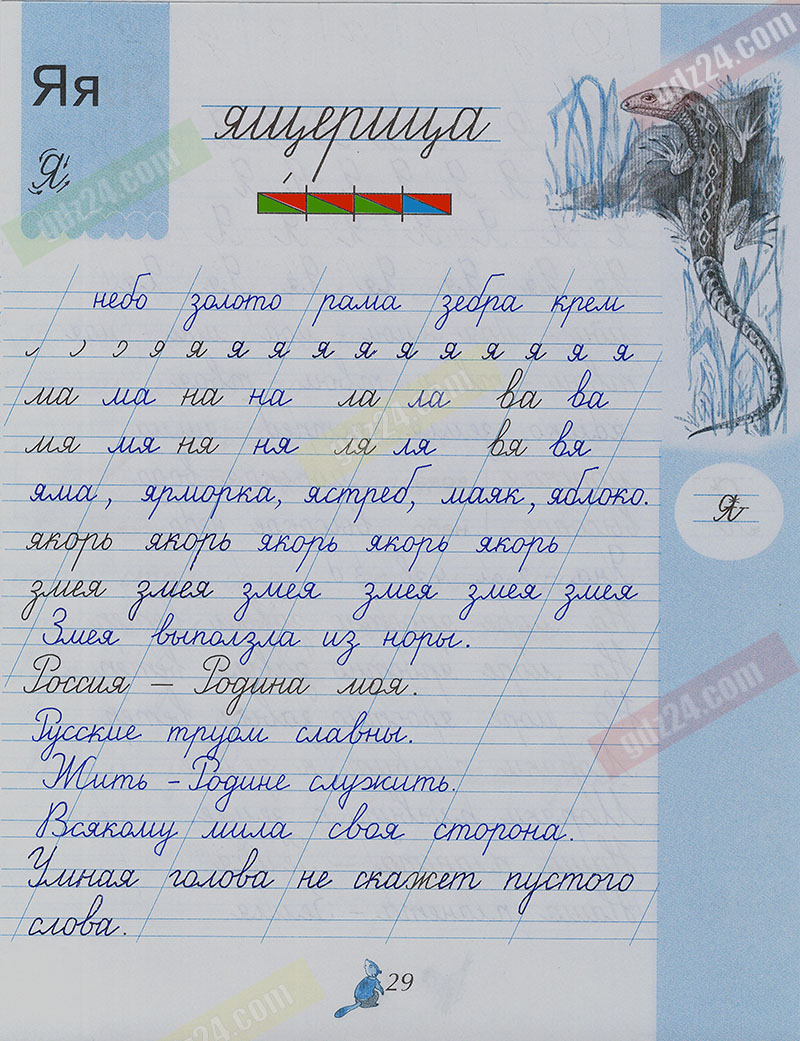 Яя
я
ящерица
небо золото рама зебра крем
я я я я я я я я я я я
ма ма на на ла ла ва ва
мя мя ня ня ля ля вя вя
яма, ярморка, ястреб, маяк, яблоко.
якорь якорь якорь якорь якорь
змея змея змея змея змея змея
я
Змея выползла из норы.
Россия – Родина моя.
Русские трудом славны.
Жить – Родине служить.
Всякому мила своя сторона.
Умная голова не скажет пустого
слова.
29
gdz24.com
gdz24.com
gdz24.com
gdz24.com
gdz24.com